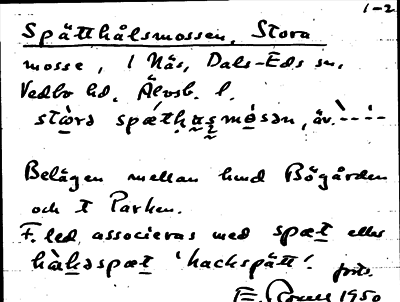 1-2
Spätthålsmossen, Stora
mosse, 1 Näs, Dals-Eds sn,
Vedbo hd, Älvsb. l.
stòrə spæthɑsmósən, äv.
Belägen mellan hmd Bögården
och t Parken.
F. led associeras med spæt eller
hàkəspæt 'hackspätt'.
forts.
1950